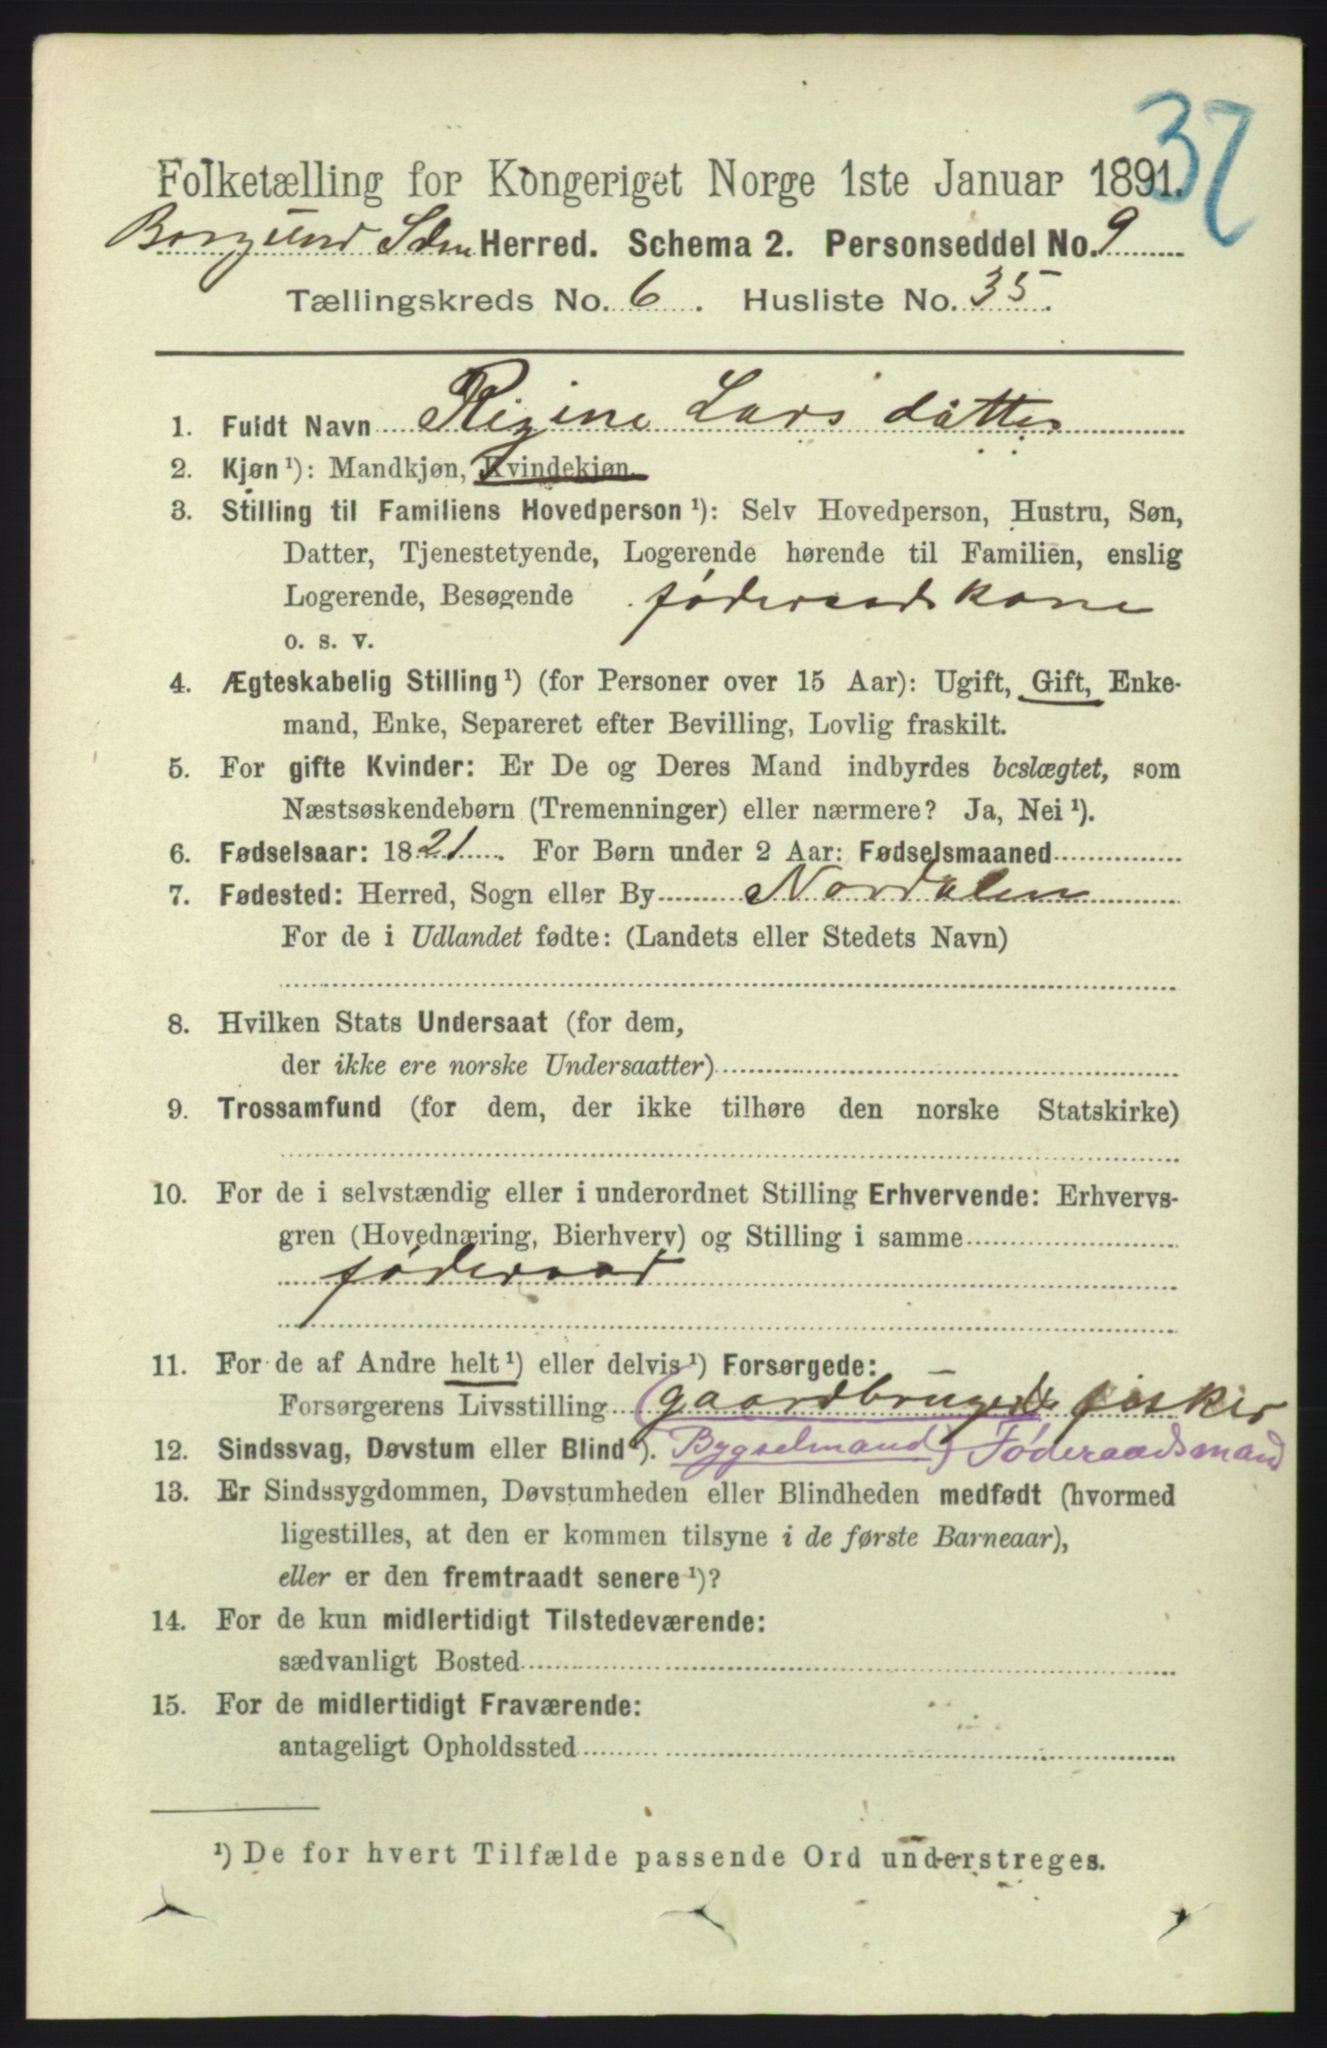 37
Folketælling for Kongeriget Norge 1ste Januar 1891.
Borgund Sdm Herred. Schema 2. Personseddel No. 9
Tællingskreds No. 6. Husliste No. 35.
1. Fuldt Navn Regine Lars datter
2. Kjøn ¹): Mandkjøn, Kvindekjøn.
3. Stilling til Familiens Hovedperson ¹): Selv Hovedperson, Hustru, Søn,
Datter, Tjenestetyende, Logerende hørende til Familien, enslig
Logerende, Besøgende føderaadskone
o. s. v.
4. Ægteskabelig Stilling ¹) (for Personer over 15 Aar): Ugift, Gift, Enke-
mand, Enke, Separeret efter Bevilling, Lovlig fraskilt.
5. For gifte Kvinder: Er De og Deres Mand indbyrdes beslægtet, som
Næstsøskendebørn (Tremenninger) eller nærmere? Ja, Nei ¹).
6. Fødselsaar: 1821. For Børn under 2 Aar: Fødselsmaaned
7. Fødested: Herred, Sogn eller By Nordalen
For de i Udlandet fødte: (Landets eller Stedets Navn)
8. Hvilken Stats Undersaat (for dem,
der ikke ere norske Undersaatter)
9. Trossamfund (for dem, der ikke tilhøre den norske Statskirke)
10. For de i selvstændig eller i underordnet Stilling Erhvervende: Erhvervs-
gren (Hovednæring, Bierhverv) og Stilling i samme
føderaad
11. For de af Andre helt ¹) eller delvis ¹) Forsørgede:
Forsørgerens Livsstilling (gaardbruger fisker
12. Sindssvag, Døvstum eller Blind ¹). Bygselmand) Føderaadsmand
13. Er Sindssygdommen, Døvstumheden eller Blindheden medfødt (hvormed
ligestilles, at den er kommen tilsyne i de første Barneaar),
eller er den fremtraadt senere ¹)?
14. For de kun midlertidigt Tilstedeværende:
sædvanligt Bosted
15. For de midlertidigt Fraværende:
antageligt Opholdssted
¹) De for hvert Tilfælde passende Ord understreges.